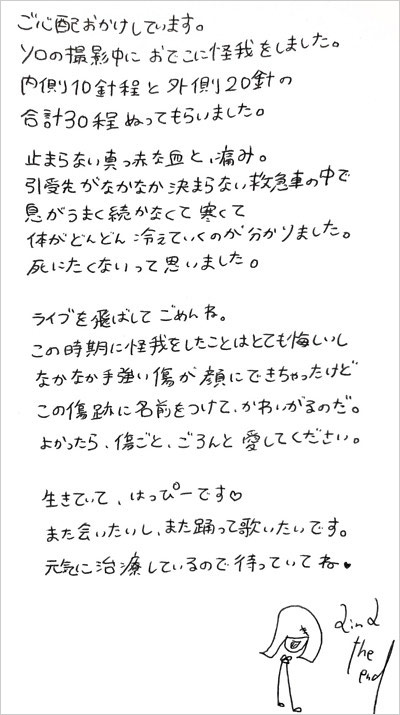 ご心配おかけしています。
ソロの撮影中に おでこに怪我をしました。
内側10針程と外側20針の
合計30程ぬってもらいました。
止まらない真っ赤な血と、痛み。
引受先がなかなか決まらない救急車の中で
息がうまく続かなくて寒くて
体がどんどん冷えていくのが分かりました。
死にたくないって思いました。
ライブを飛ばしてごめんね。
この時期に怪我をしたことはとても悔いし
なかなか手強い傷が顔にできちゃったけど
この傷跡に名前をつけて、かわいがるのだ。
よかったら、傷ごと、ごろんと愛してください。
生きていて、はっぴーです♡
また会いたいし、また踊って歌いたいです。
元気に治療しているので待っていてね♥
the
end